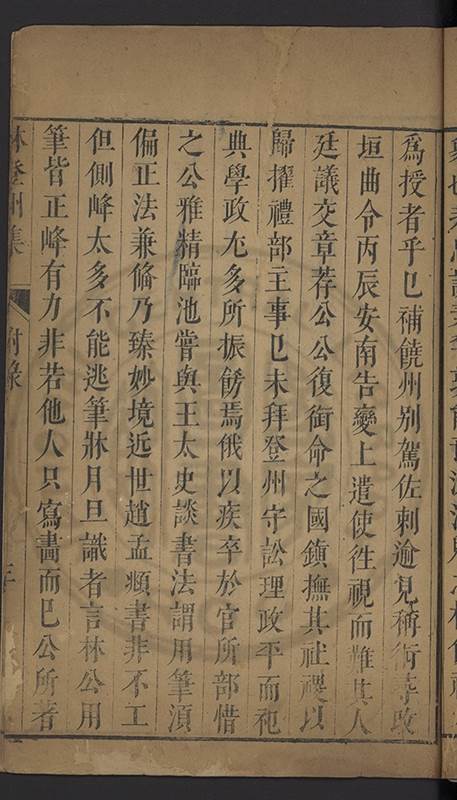 為授者乎已補饒州别駕佐刺逾見稱術尋改
垣曲令丙辰安南告變上遣使徃視而難其人
廷議交章荐公公復銜命之國鎭撫其社稷以
歸擢禮部主事已未拜登州守訟理政平而祀
典學政尢多所振飭焉俄以疾卒於官所部惜
之公雅精臨池嘗與王太史談書法謂用筆湏
偏正法兼俻乃臻妙境近世趙孟頫書非不工
但側峰太多不能逃筆牀月旦識者言林公用
筆皆正峰有力非若他人只寫畵而已公所著
林登州集 附錄